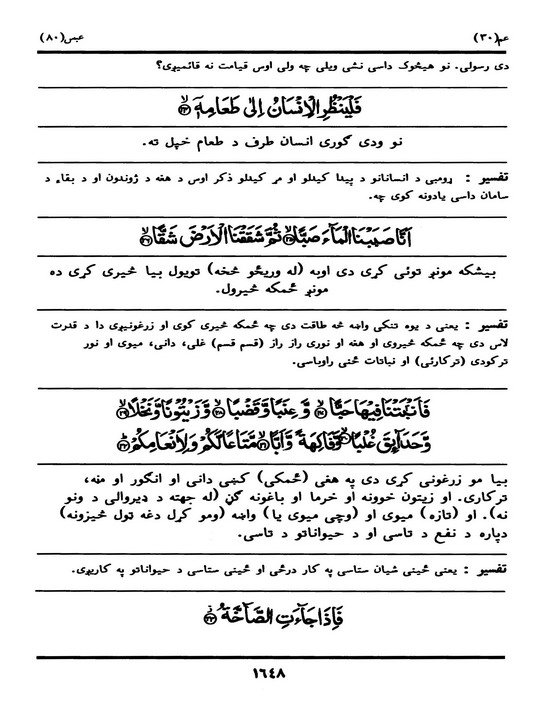 عم(۳۰) عبس(۸۰)
دی رسولی. نو هیڅوک داسی نشی ویلی چه ولی اوس قیامت نه قائمیږی؟
فَلْيَنْظُرِ الْإِنْسَانُ إِلَىٰ طَعَامِهِ ﴿۲۴﴾
نو ودی ګوری انسان طرف د طعام خپل ته.
تفسیر : ړومبی د انسانانو د پیدا کیدلو او مړ کیدلو ذکر اوس د هغه د ژوندون او د بقاء د
سامان داسی یادونه کوی چه.
أَنَّا صَبَبْنَا الْمَاءَ صَبًّا ﴿۲۵﴾ ثُمَّ شَقَقْنَا الْأَرْضَ شَقًّا ﴿۲۶﴾
بیشکه مونږ توئی کړی دی اوبه (له وریځو څخه) تویول بیا څیری کړی ده
مونږ ځمکه څیرول.
تفسیر : یعنی د یوه تنکی واښه څه طاقت دی چه ځمکه څیری کوی او زرغونیږی دا د قدرت
لاس دی چه ځمکه څیروی او هغه او نوری راز راز (قسم قسم) غلی، دانی، میوی او نور
ترکودی (ترکارئی) او نباتات ځنی راوباسی.
فَأَنْبَتْنَا فِيهَا حَبًّا ﴿۲۷﴾ وَعِنَبًا وَقَضْبًا ﴿۲۸﴾ وَزَيْتُونًا وَنَخْلًا ﴿۲۹﴾
وَحَدَائِقَ غُلْبًا ﴿۳۰﴾ وَفَاكِهَةً وَأَبًّا ﴿۳۱﴾ مَتَاعًا لَكُمْ وَلِأَنْعَامِكُمْ ﴿۳۲﴾
بیا مو زرغونی کړی دی په هغی (ځمکی) کښی دانی او انګور او منه،
ترکاری. او زیتون خوونه او خرما او باغونه ګڼ (له جهته د ډیروالی د ونو
نه). او (تازه) میوی او (وچی میوی یا) واښه (ومو کړل دغه ټول څیزونه)
دپاره د نفع د تاسی او د حیواناتو د تاسی.
تفسیر : یعنی ځینی شیان ستاسی په کار درځی او ځینی ستاسی د حیواناتو په کاریږی.
فَإِذَا جَاءَتِ الصَّاخَّةُ ﴿۳۳﴾
۱٦٤٨